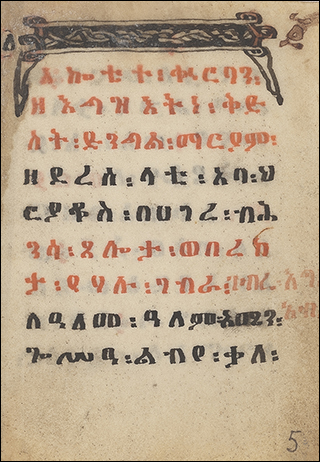 አኰቴተ፡ቍርባን፡
ዘእግዝእትነ፡ቅድ
ስት፡ድንግል፡ማርያም፡
ዘደረሰ፡ላቲ፡አባ፡ህ
ርያቆስ፡በሀገረ፡ብሕ
ንሳ፡ጸሎታ፡ወበረከ
ታ፡የሃሉ፡
ለዓለመ፡ዓለም፡አሜን፡
ጐሥዓ፡ልብየ፡ቃለ፡
5